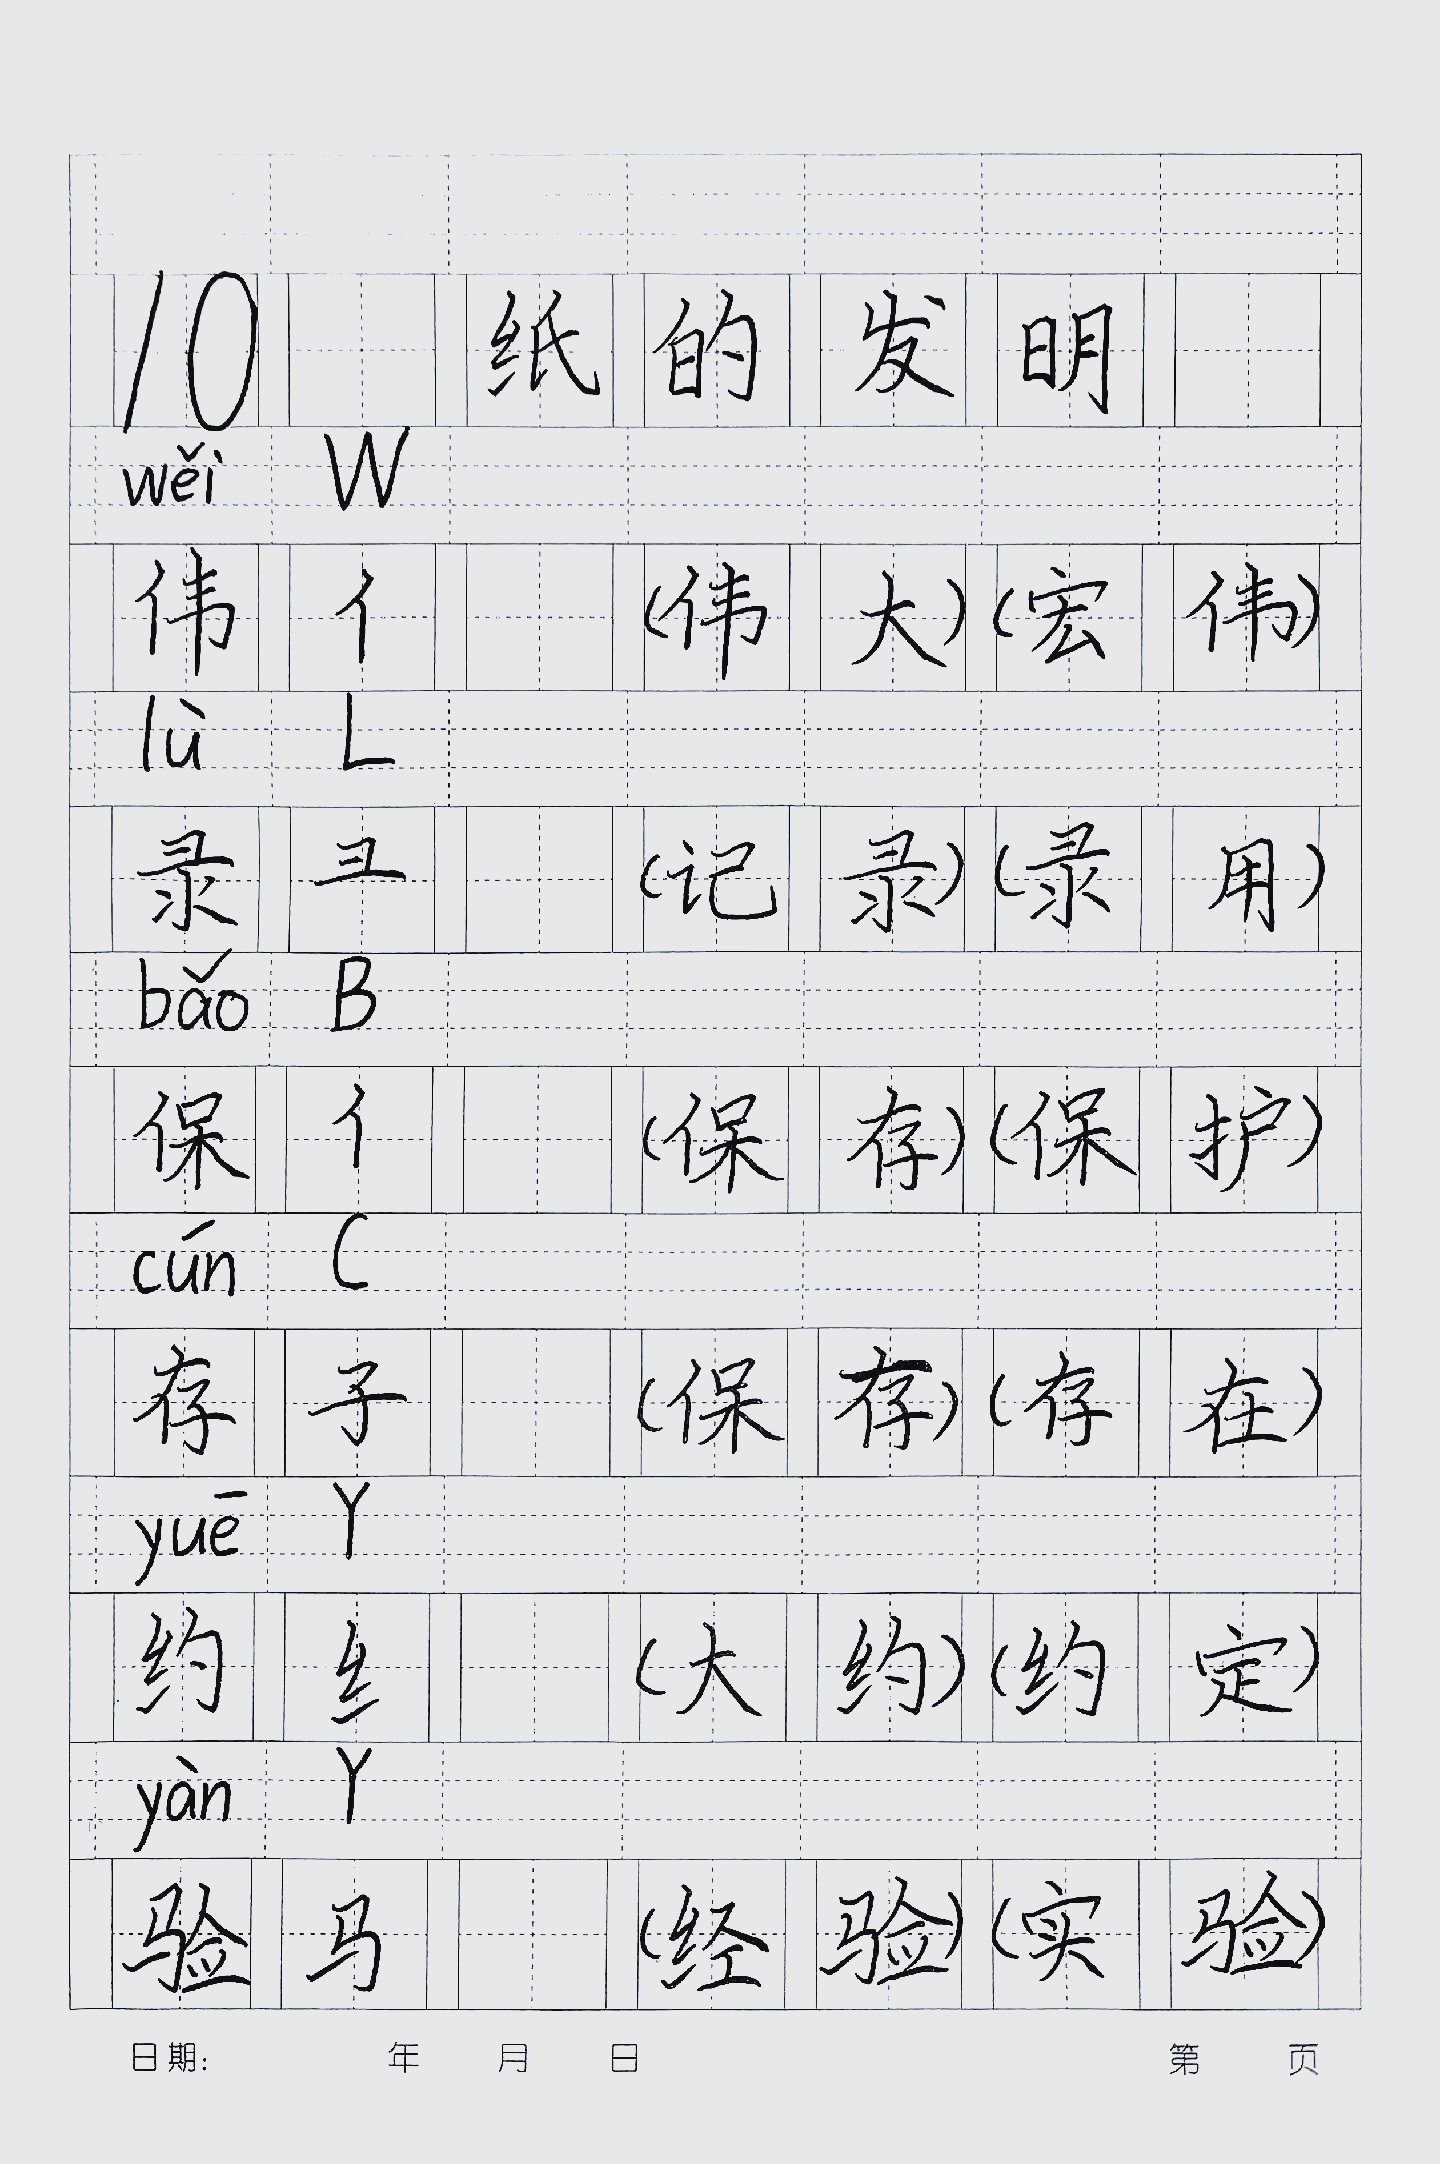 10 纸的发明
wěi W
伟 亻 (伟大) (宏伟)
lù L
录 彐 (记录) (录用)
bǎo B
保 亻 (保存) (保护)
cún C
存 子 (保存) (存在)
yuē Y
约 纟 (大约) (约定)
yàn Y
验 马 (经验) (实验)
日期: 年 月 日 第 页